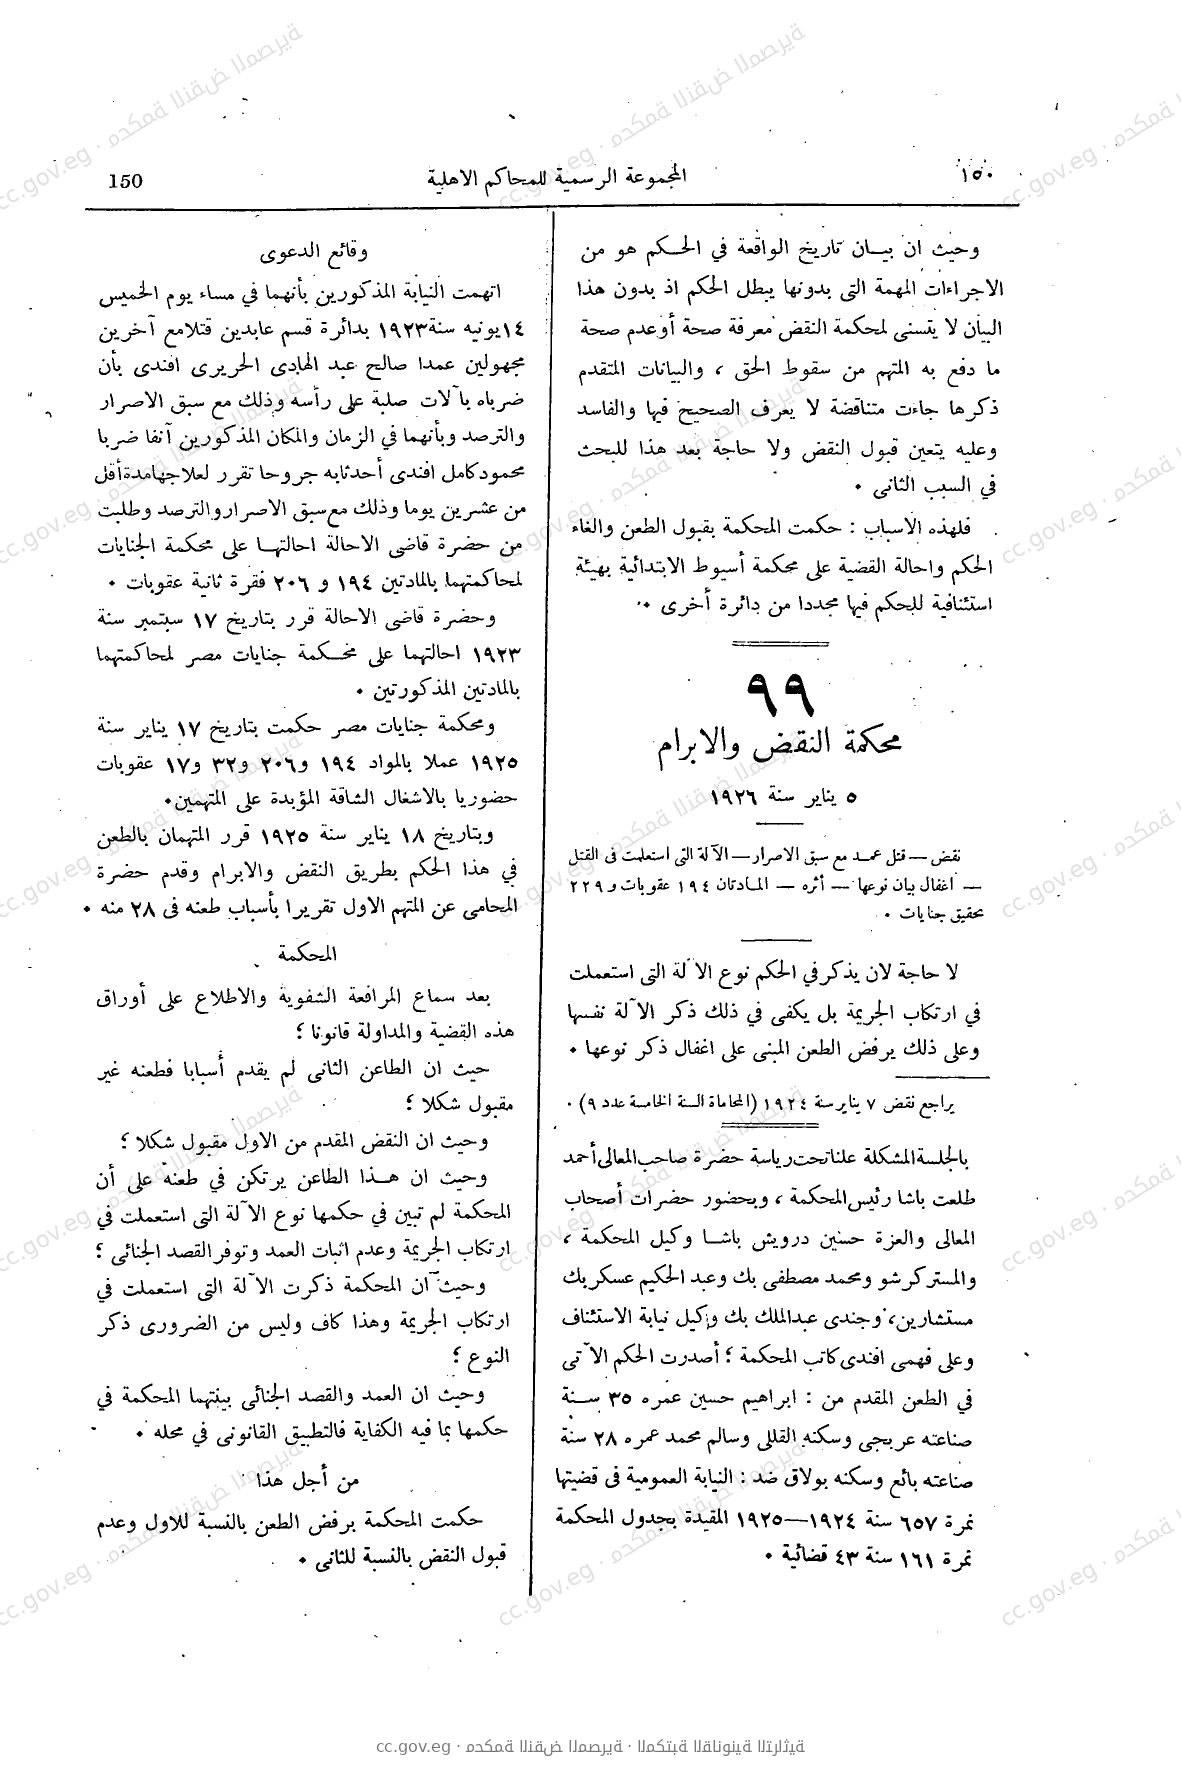 ١٥٠
المجموعة الرسمية للمحاكم الاهلية
150
وحيث ان بيان تاريخ الواقعة في الحكم هو من
الاجراءات المهمة التى بدونها يبطل الحكم اذ بدون هذا
البيان لا يتسنى لمحكمة النقض معرفة صحة أوعدم صحة
ما دفع به المتهم من سقوط الحق ، والبيانات المتقدم
ذكرها جاءت متناقضة لا يعرف الصحيح فيها والفاسد
وعليه يتعين قبول النقض ولا حاجة بعد هذا للبحث
في السبب الثانى .
فلهذه الاسباب : حكمت المحكمة بقبول الطعن والغاء
الحكم واحالة القضية على محكمة أسيوط الابتدائية بهيئة
استئنافية للحكم فيها مجددا من دائرة أخرى .
٩٩
محكمة النقض والابرام
٥ يناير سنة ١٩٢٦
نقض — قتل عمد مع سبق الاصرار — الآلة التى استعملت فى القتل
— اغفال بيان نوعها — أثره — المادتان ١٩٤ عقوبات و ٢٢٩
تحقيق جنايات .
لا حاجة لان يذكر في الحكم نوع الآلة التى استعملت
في ارتكاب الجريمة بل يكفى في ذلك ذكر الآلة نفسها
وعلى ذلك يرفض الطعن المبنى على اغفال ذكر نوعها .
يراجع نقض ٧ يناير سنة ١٩٢٤ (المحاماة السنة الخامسة عدد ٩) .
بالجلسة المشكلة علنا تحت رياسة حضرة صاحب المعالى أحمد
طلعت باشا رئيس المحكمة ، وبحضور حضرات أصحاب
المعالى والعزة حسنين درويش باشا وكيل المحكمة ،
والمستر كرشو ومحمد مصطفى بك وعبد الحكيم عسكر بك
مستشارين، وجندى عبد الملك بك وكيل نيابة الاستئناف
وعلى فهمى افندى كاتب المحكمة ؛ أصدرت الحكم الآتى
في الطعن المقدم من : ابراهيم حسين عمره ٣٥ سنة
صناعته عربجى وسكنه القللى وسالم محمد عمره ٢٨ سنة
صناعته بائع وسكنه بولاق ضد : النيابة العمومية فى قضيتها
نمرة ٦٥٧ سنة ١٩٢٤—١٩٢٥ المقيدة بجدول المحكمة
نمرة ١٦١ سنة ٤٣ قضائية .
وقائع الدعوى
اتهمت النيابة المذكورين بأنهما في مساء يوم الخميس
١٤ يونيه سنة ١٩٢٣ بدائرة قسم عابدين قتلا مع آخرين
مجهولين عمدا صالح عبد الهادى الحريرى افندى بأن
ضرباه بآلات صلبة على رأسه وذلك مع سبق الاصرار
والترصد وبأنهما في الزمان والمكان المذكورين آنفا ضربا
محمود كامل افندى أحدثا به جروحا تقرر لعلاجها مدة أقل
من عشرين يوما وذلك مع سبق الاصرار والترصد وطلبت
من حضرة قاضى الاحالة احالتهما على محكمة الجنايات
لمحاكمتهما بالمادتين ١٩٤ و ٢٠٦ فقرة ثانية عقوبات .
وحضرة قاضى الاحالة قرر بتاريخ ١٧ سبتمبر سنة
١٩٢٣ احالتهما على محكمة جنايات مصر لمحاكمتهما
بالمادتين المذكورتين .
ومحكمة جنايات مصر حكمت بتاريخ ١٧ يناير سنة
١٩٢٥ عملا بالمواد ١٩٤ و٢٠٦ و٣٢ و١٧ عقوبات
حضوريا بالاشغال الشاقة المؤبدة على المتهمين.
وبتاريخ ١٨ يناير سنة ١٩٢٥ قرر المتهمان بالطعن
في هذا الحكم بطريق النقض والابرام وقدم حضرة
المحامى عن المتهم الاول تقريرا بأسباب طعنه فى ٢٨ منه .
المحكمة
بعد سماع المرافعة الشفوية والاطلاع على أوراق
هذه القضية والمداولة قانونا ؛
حيث ان الطاعن الثانى لم يقدم أسبابا فطعنه غير
مقبول شكلا ؛
وحيث ان النقض المقدم من الاول مقبول شكلا ؛
وحيث ان هذا الطاعن يرتكن في طعنه على أن
المحكمة لم تبين في حكمها نوع الآلة التى استعملت في
ارتكاب الجريمة وعدم اثبات العمد وتوفر القصد الجنائى ؛
وحيث ان المحكمة ذكرت الآلة التى استعملت في
ارتكاب الجريمة وهذا كاف وليس من الضرورى ذكر
النوع ؛
وحيث ان العمد والقصد الجنائى بينتهما المحكمة في
حكمها بما فيه الكفاية فالتطبيق القانونى في محله .
من أجل هذا
حكمت المحكمة برفض الطعن بالنسبة للاول وعدم
قبول النقض بالنسبة للثانى .
cc.gov.eg · محكمة النقض المصرية · المكتبة القانونية التراثية